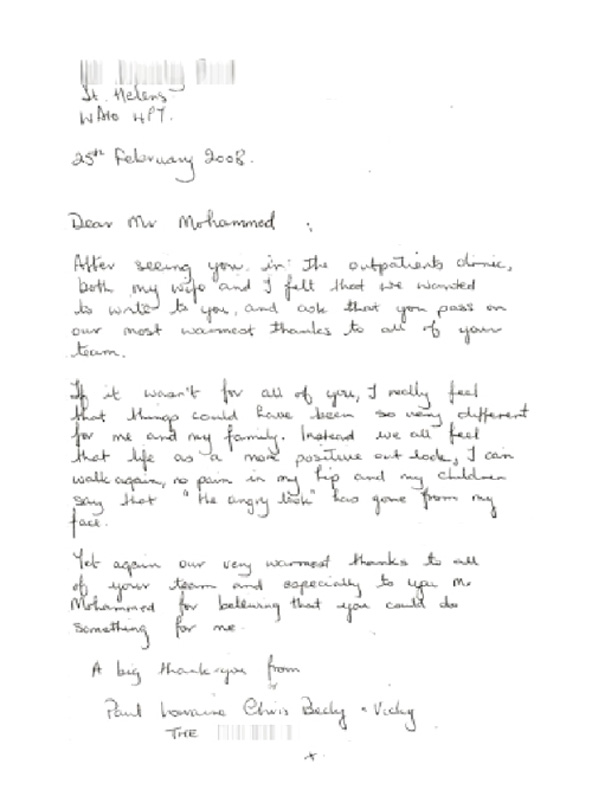 St. Helens
WA10 4PT.
25th February 2008.
Dear Mr Mohammed
After seeing you in the outpatients clinic,
both my wife and I felt that we wanted
to write to you, and ask that you pass on
our most warmest thanks to all of your
team.
If it wasn't for all of you, I really feel
that things could have been so very different
for me and my family. Instead we all feel
that life as a more positive out look, I can
walk again, no pain in my hip and my children
say that "the angry look" has gone from my
face.
Yet again our very warmest thanks to all
of your team and especially to you Mr
Mohammed for believing that you could do
something for me.
A big thank-you from
Paul Lorraine Chris Becky + Vicky
THE
x